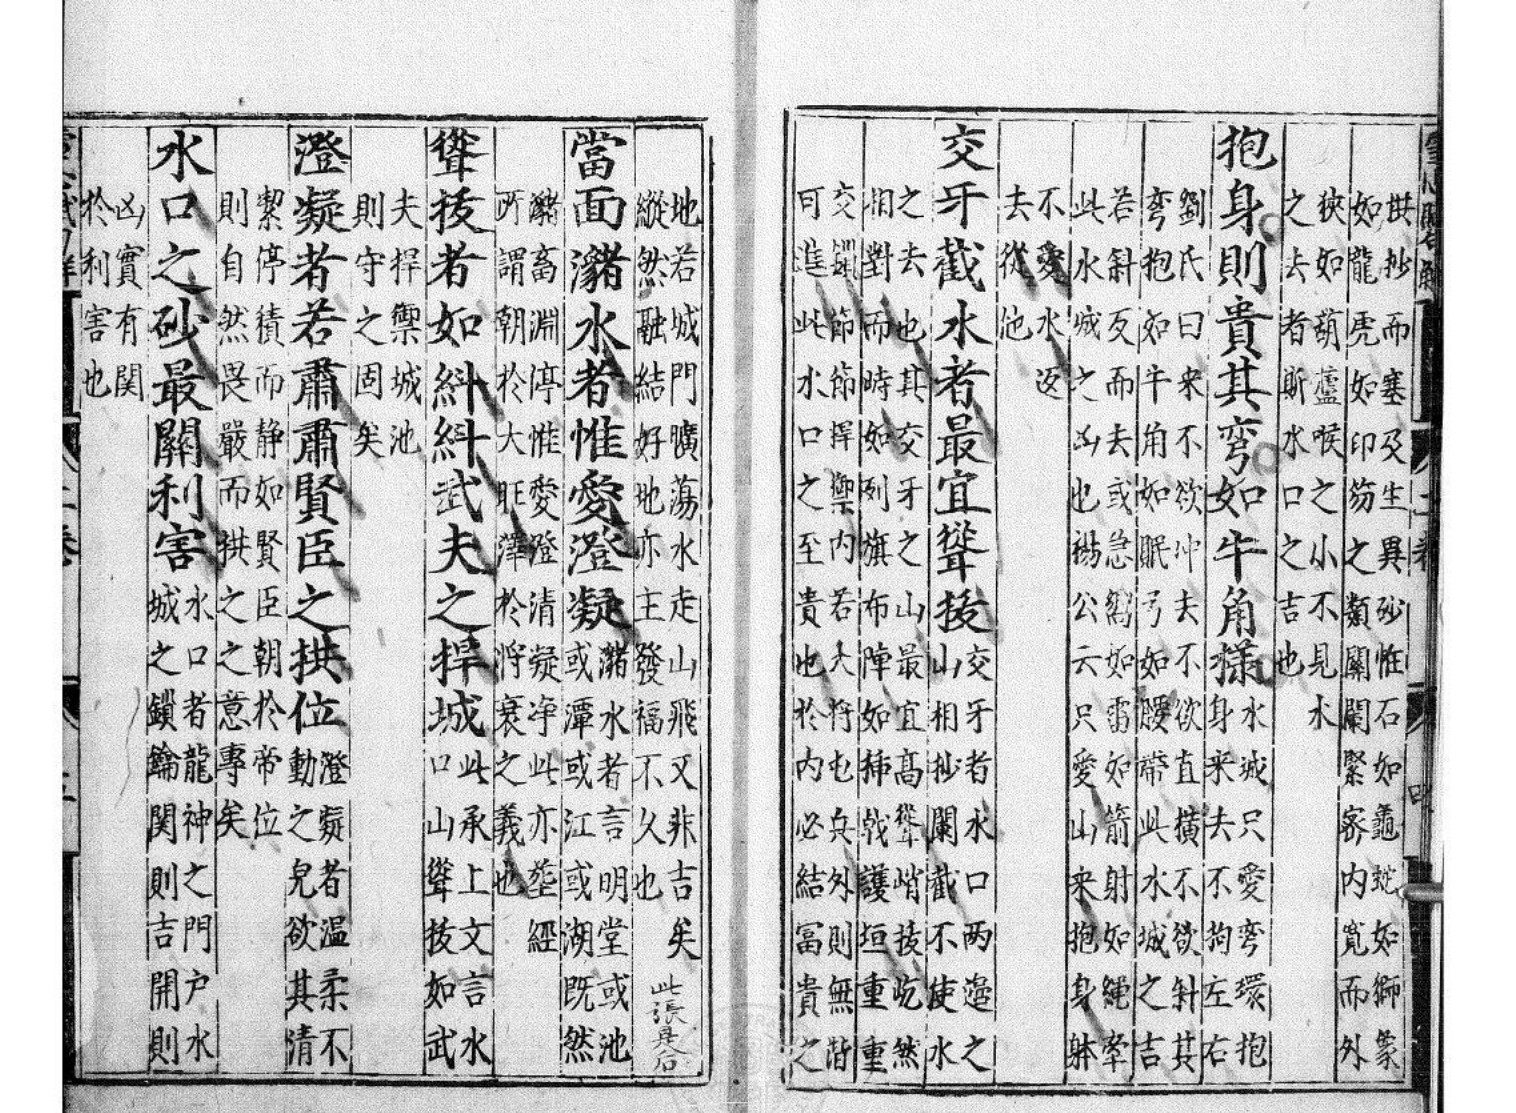 拱抄而塞及生異砂惟石如龜蛇如獅象
如龍虎如印笏之類關闌緊密内寬而外
狹如葫蘆喉之小不見水
之去者斯水口之吉也
抱身則貴其弯如牛角樣
水城只愛弯環抱
身来去不拘左右
劉氏曰来不欲冲去不欲直横不欲斜其
弯抱如牛角如眠弓如腰帶此水城之吉
若斜反而去或急瀉如雷如箭射如繩牽
此水城之凶也楊公云只愛山来抱身躰
不愛水返
去從他
交牙截水者最宜聳拔
交牙者水口两邉之
山相抄闌截不使水
之去也其交牙之山最宜髙聳峭拔屹然
相對而時如列旗布陣如揷戟護垣重重
交鎖節節捍禦内若大将屯兵外則無諧
可進此水口之至貴也於内必結富貴之
地若城門曠蕩水走山飛又非吉矣
此張是合
縱然融結好地亦主發福不久也
當面瀦水者惟愛澄凝
瀦水者言明堂或池
或潭或江或湖既然
瀦畜淵停惟愛澄清凝净此亦𦵏經
所謂朝於大旺澤於将衰之義也
聳拔者如糾糾武夫之捍城
此承上文言水
口山聳拔如武
夫捍禦城池
則守之固矣
澄凝者若肅肅賢臣之拱位
澄凝者温柔不
動之皃欲其清
潔停積而静如賢臣朝於帝位
則自然畏嚴而拱之之意專矣
水口之砂最關利害
水口者龍神之門户水
城之鎖鑰関則吉開則
凶實有関
於利害也